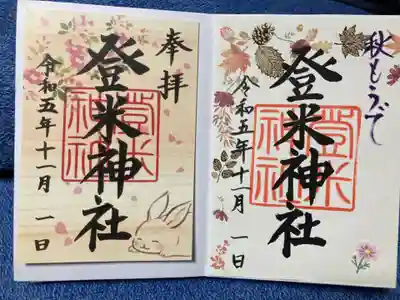 奉拝
登米神社
令和五年十一月 一日
登米神社
秋もうで
登米神社
令和五年十一月 一日
登米神社